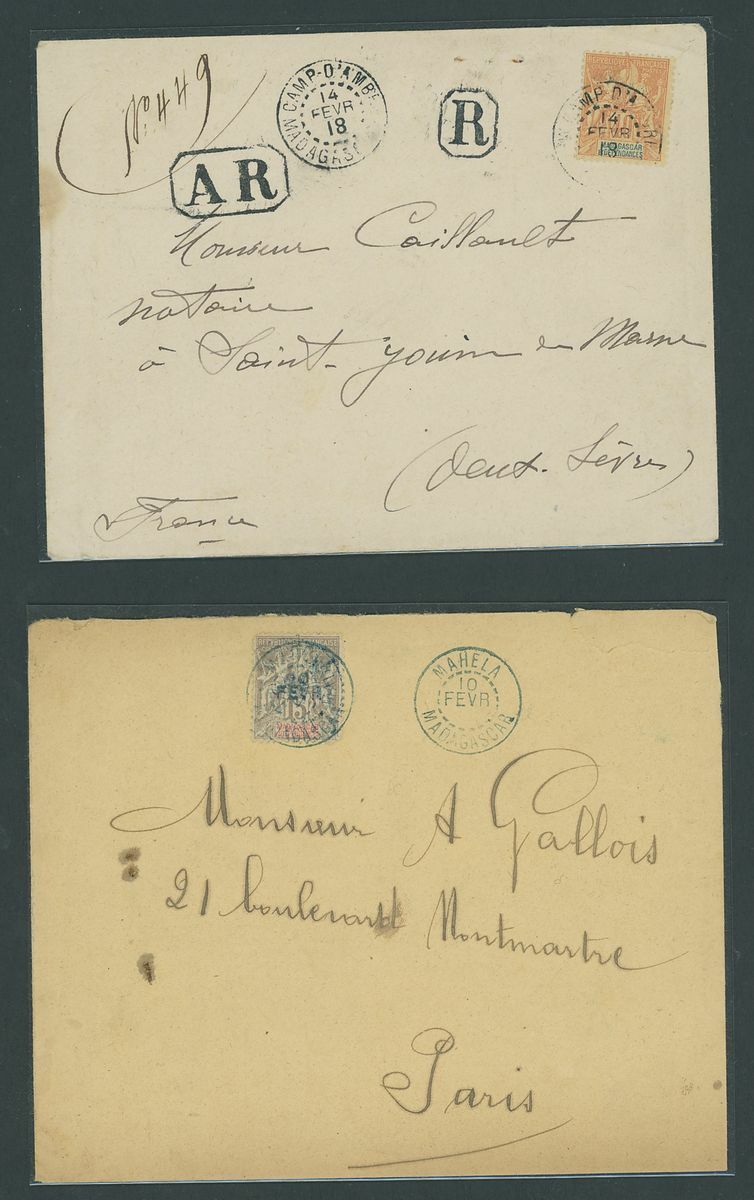 No. 449
CAMP-D'AMBRE
14
FEVR
18
MADAGASCAR
AR
R
REPUBLIQUE FRANÇAISE
CAMP-D'A
14
FEVR
18
MADAGASCAR
DEPENDANCES
Monsieur Caillault
notaire
à Saint-Jouin de Marne
(Deux-Sèvres)
France
REPUBLIQUE FRANÇAISE
FEVR
15
MAHELA
10
FEVR
MADAGASCAR
Monsieur A Gallois
21 boulevard Montmartre
Paris